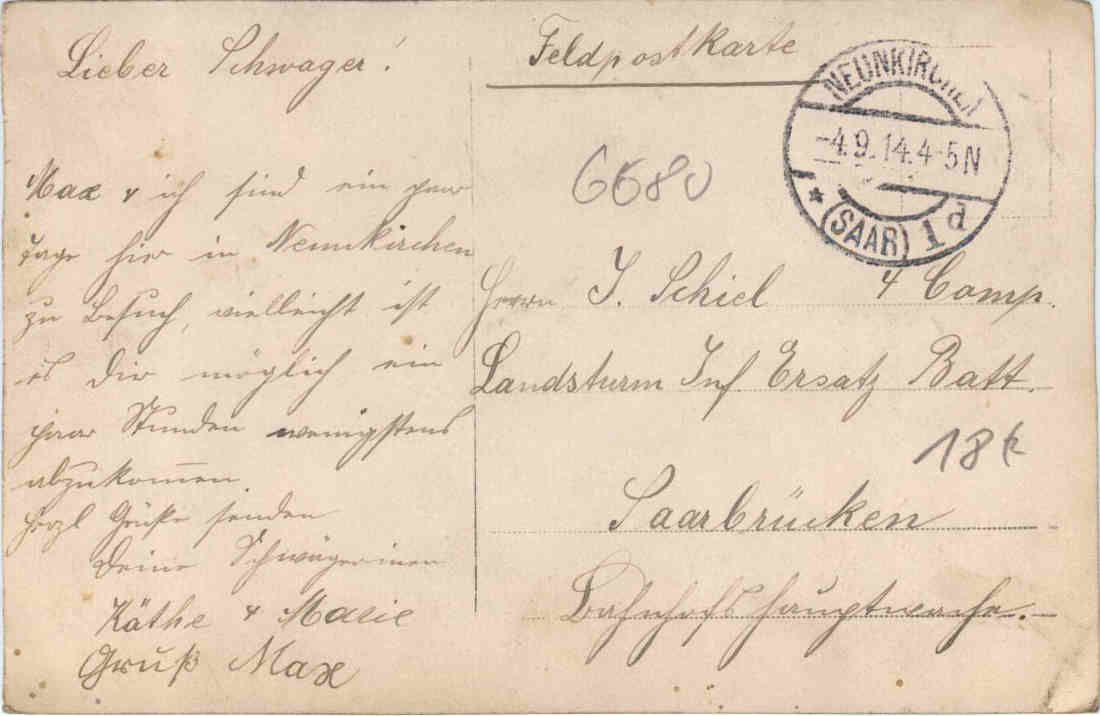 Lieber Schwager!
Max & ich sind ein paar
Tage hier in Neunkirchen
zu Besuch, vielleicht ist
es Dir möglich ein
paar Stunden wenigstens
abzukommen
Herzl Grüße senden
Deine Schwägerinnen
Käthe & Marie
Gruß Max
Feldpostkarte
NEUNKIRCHEN
-4.9.14.4-5N
* (SAAR) 1 d
6680
Herrn J. Schiel 4 Comp.
Landsturm Inf Ersatz Batt.
18
Saarbrücken
Bahnhofshauptwache.